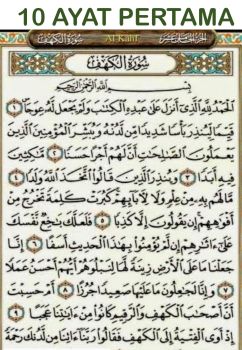 10 AYAT PERTAMA
سُورَةُ الكَهْفِ Al Kahf الجزء الخامس عشر
سُورَةُ الكَهْفِ
بِسْمِ اللَّهِ الرَّحْمَٰنِ الرَّحِيمِ
الْحَمْدُ لِلَّهِ الَّذِي أَنْزَلَ عَلَىٰ عَبْدِهِ الْكِتَٰبَ وَلَمْ يَجْعَلْ لَهُ عِوَجًا ١
قَيِّمًا لِيُنْذِرَ بَأْسًا شَدِيدًا مِنْ لَدُنْهُ وَيُبَشِّرَ الْمُؤْمِنِينَ الَّذِينَ
يَعْمَلُونَ الصَّٰلِحَٰتِ أَنَّ لَهُمْ أَجْرًا حَسَنًا ٢ مَٰكِثِينَ
فِيهِ أَبَدًا ٣ وَيُنْذِرَ الَّذِينَ قَالُوا اتَّخَذَ اللَّهُ وَلَدًا ٤
مَالَهُمْ بِهِ مِنْ عِلْمٍ وَلَا لِآبَائِهِمْ كَبُرَتْ كَلِمَةً تَخْرُجُ مِنْ
أَفْوَٰهِهِمْ إِنْ يَقُولُونَ إِلَّا كَذِبًا ٥ فَلَعَلَّكَ بَٰخِعٌ نَفْسَكَ
عَلَىٰ ءَاثَٰرِهِمْ إِنْ لَمْ يُؤْمِنُوا بِهَٰذَا الْحَدِيثِ أَسَفًا ٦ إِنَّا
جَعَلْنَا مَا عَلَى الْأَرْضِ زِينَةً لَهَا لِنَبْلُوَهُمْ أَيُّهُمْ أَحْسَنُ عَمَلًا
٧ وَإِنَّا لَجَٰعِلُونَ مَا عَلَيْهَا صَعِيدًا جُرُزًا ٨ أَمْ حَسِبْتَ
أَنَّ أَصْحَٰبَ الْكَهْفِ وَالرَّقِيمِ كَانُوا مِنْ ءَايَٰتِنَا عَجَبًا ٩
إِذْ أَوَى الْفِتْيَةُ إِلَى الْكَهْفِ فَقَالُوا رَبَّنَا ءَاتِنَا مِنْ لَدُنْكَ رَحْمَةً